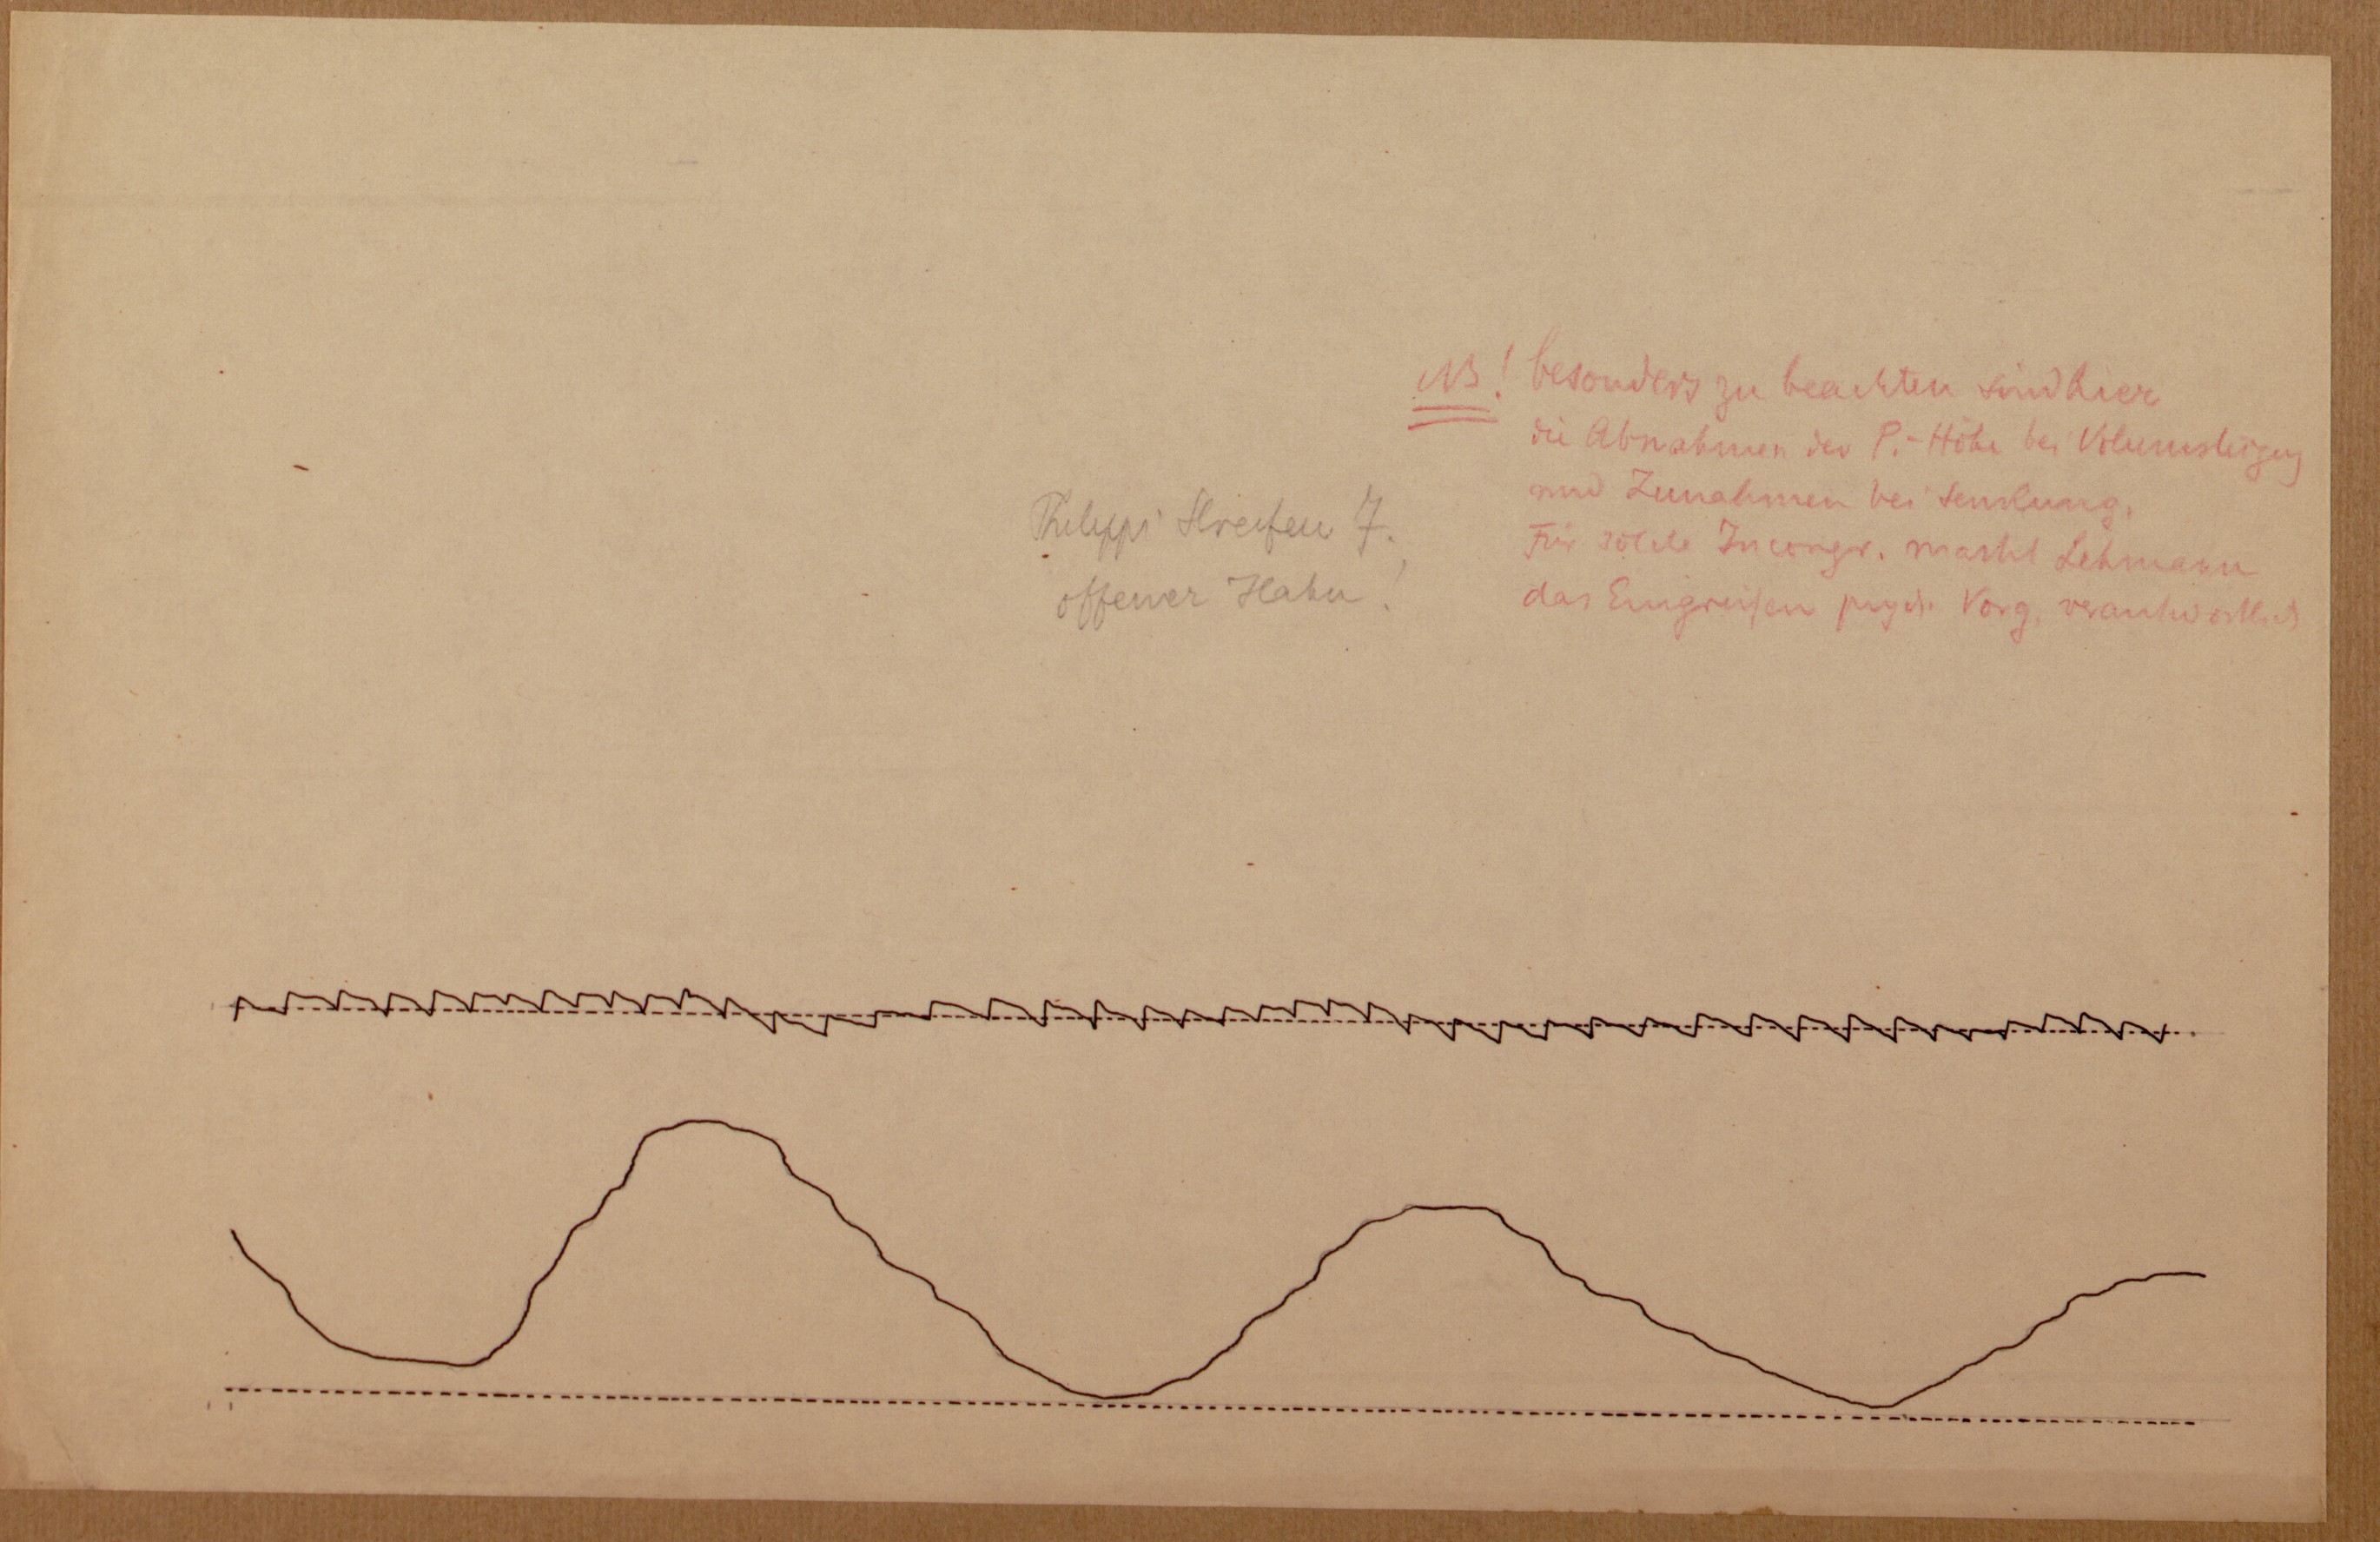 Philippi Streifen 7.
offener Hahn!
NB! besonders zu beachten sind hier
die Abnahmen der P.-Höhe bei Volumsteigung
und Zunahmen bei Senkung.
Für solche Incongr. macht Lehmann
das Eingreifen psych. Vorg. verantwortlich